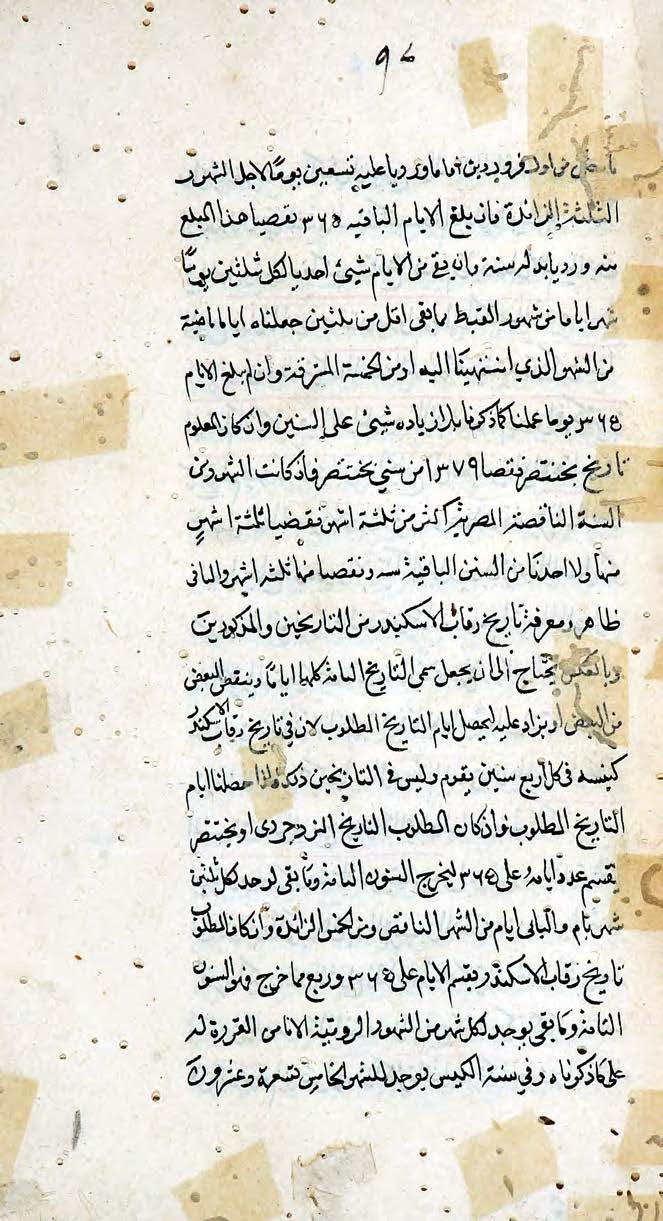 ٩٨
من اول فروردين اياما وزدنا عليه تسعين يوما لاجل الشهور
الثلثة الزائدة فان بلغ الايام الباقيه ٣٦٥ نقصنا هذا المبلغ
منه وزدنا بدله سنة فان بقي من الايام شيئ اخذنا لكل ثلثين يوما
شهرا ياما من شهور القبط مابقى اقل من ثلثين جعلناه اياما ماضية
من الشهر الذي انتهينا اليه او من الخمسة المسترقة وان لم يبلغ الايام
٣٦٥ يوما عملنا كما ذكرنا بلا زياده شيئ على السنين وان كان المعلوم
تاريخ بختنصر نقصنا ١٣٧٩ من سني بختنصر فان كانت الشهور من
السنة الناقصة المصرية اكثر من ثلثة اشهر نقصنا ثلثة اشهر
منها والا اخذنا من السنين الباقية سنه ونقصنا منها ثلثه اشهر والباقى
ظاهر ومعرفة تاريخ رقاب الاسكندر من التاريخين والمذكورين
وبالعكس يحتاج الى ان يجعل سمى التاريخ التامة كلها اياما وينقص البعض
من البعض او يزاد عليه ليحصل ايام التاريخ المطلوب لان في تاريخ رقاب الاسكندر
كبيسه في كل اربع سنين بيوم وليس في التاريخين ذلك فاذا حصلنا ايام
التاريخ المطلوب فان كان المطلوب التاريخ اليزدجردى او بختنصر
يقسم عدد ايامه على ٣٦٥ ليخرج السنون التامة وما بقى يوخذ لكل ثلثين
شهر تام والباقى ايام من الشهر الناقص ومن الخمس الزائدة وان كان المطلوب
تاريخ رقاب الاسكندر يقسم الايام على ٣٦٥ وربع فما خرج فهو السنون
التامة وما بقى يوخذ لكل شهر من الشهور الرومية الايام المقررة له
على ما ذكرناه وفي سنة الكبس يوخذ للشهر الخامس تسعة وعشرون